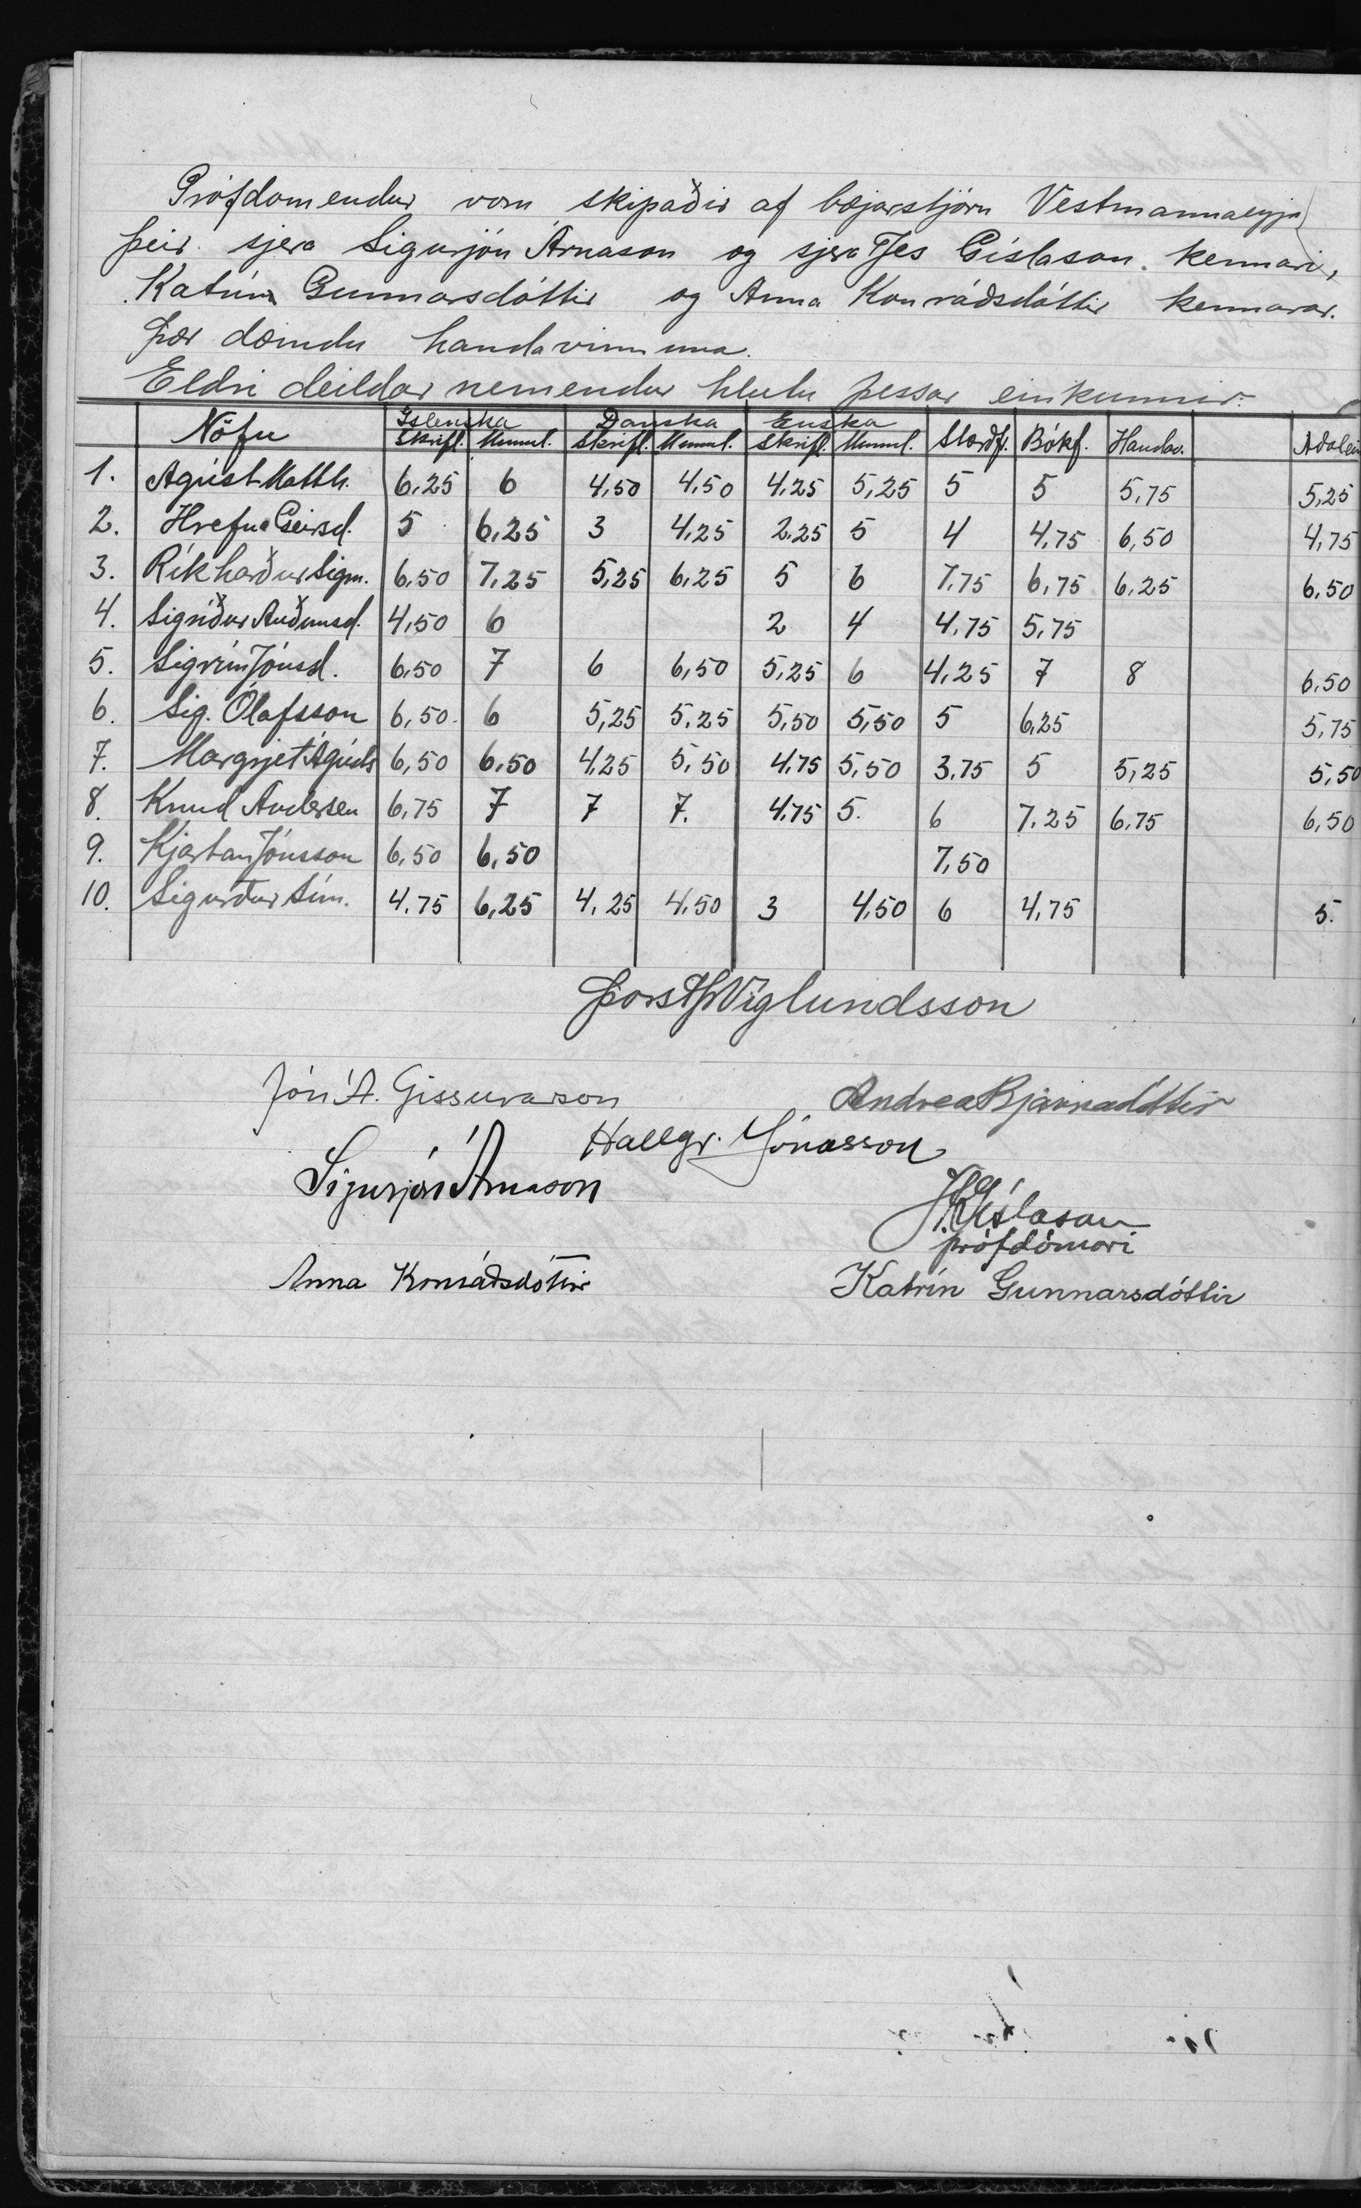 Prófdomendur voru skipaðir af bæjarstjórn Vestmannaeyja
þeir sjera Sigurjón Árnason og sjera Jes Gíslason. kennari,
Katrín Gunnarsdóttir og Anna Konráðsdóttir kennarar.
Þær dæmdu handavinnuna.
Eldri deildar nemendur hlutu þessar einkunnir.
Nöfn Íslenska Danska Enska Stærðf. Bókf. Handav. Aðalein
Skrifl. Munnl. Skrifl. Munnl. Skrifl. Munnl.
1. Ágúst Matth. 6,25 6 4,50 4,50 4,25 5,25 5 5 5,75 5,25
2. Hrefna Geirsd. 5 6,25 3 4,25 2,25 5 4 4,75 6,50 4,75
3. Ríkharður Sigm. 6,50 7,25 5,25 6,25 5 6 7,75 6,75 6,25 6,50
4. Sigríður Auðunsd. 4,50 6 2 4 4,75 5,75
5. Sigrún Jónsd. 6,50 7 6 6,50 5,25 6 4,25 7 8 6,50
6. Sig. Ólafsson 6,50 6 5,25 5,25 5,50 5,50 5 6,25 5,75
7. Margrjet Ágústs 6,50 6,50 4,25 5,50 4,75 5,50 3,75 5 5,25 5,50
8. Knud Andersen 6,75 7 7 7. 4,75 5. 6 7,25 6,75 6,50
9. Kjartan Jónsson 6,50 6,50 7,50
10. Sigurður Sím. 4,75 6,25 4,25 4,50 3 4,50 6 4,75 5.
Þorst Þ Víglundsson
Jón Á. Gissurarson Andrea Bjarnadóttir
Hallgr. Jónasson
Sigurjón Árnason
Gíslason
prófdómari
Anna Konráðsdóttir Katrín Gunnarsdóttir